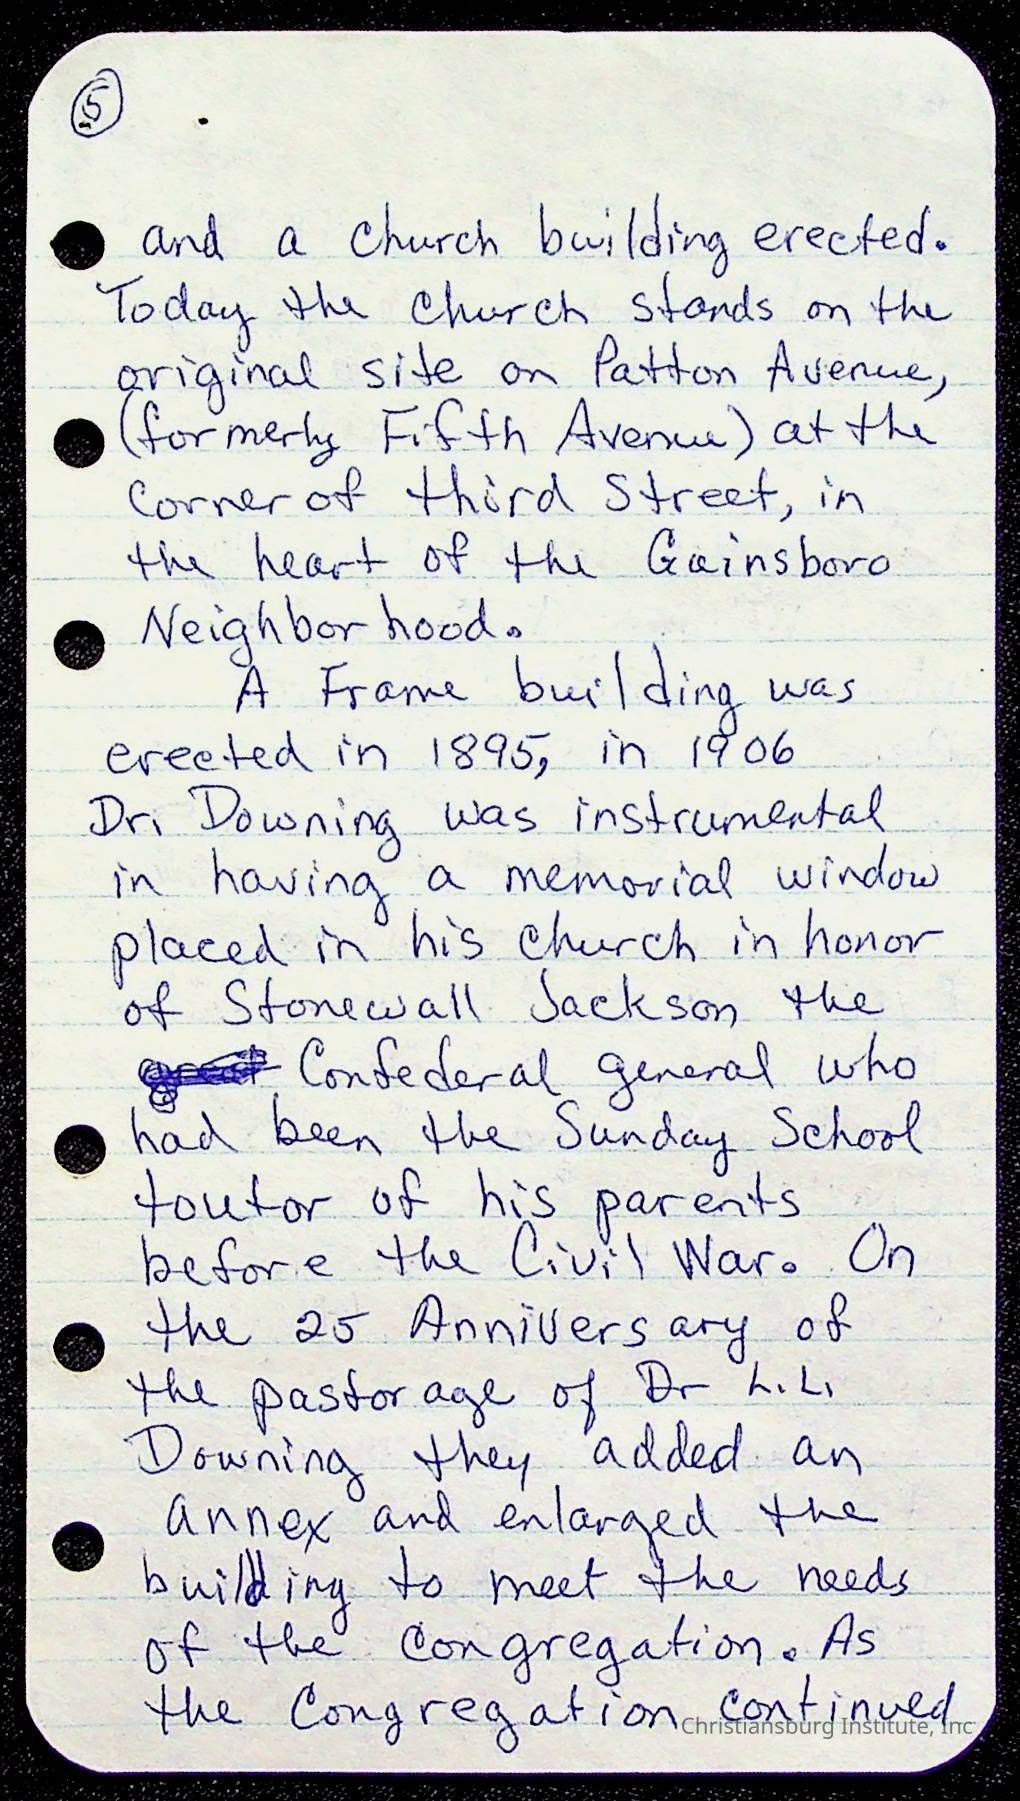 5
and a church building erected.
Today the church stands on the
original site on Patton Avenue,
(formerly Fifth Avenue) at the
Corner of third Street, in
the heart of the Gainsboro
Neighborhood.
A Frame building was
erected in 1895, in 1906
Dr. Downing was instrumental
in having a memorial window
placed in his church in honor
of Stonewall Jackson the
great Confederal general who
had been the Sunday School
toutor of his parents
before the Civil War. On
the 25 Anniversary of
the pastorage of Dr L.L.
Downing they added an
annex and enlarged the
building to meet the needs
of the congregation. As
the Congregation continued
Christiansburg Institute, Inc